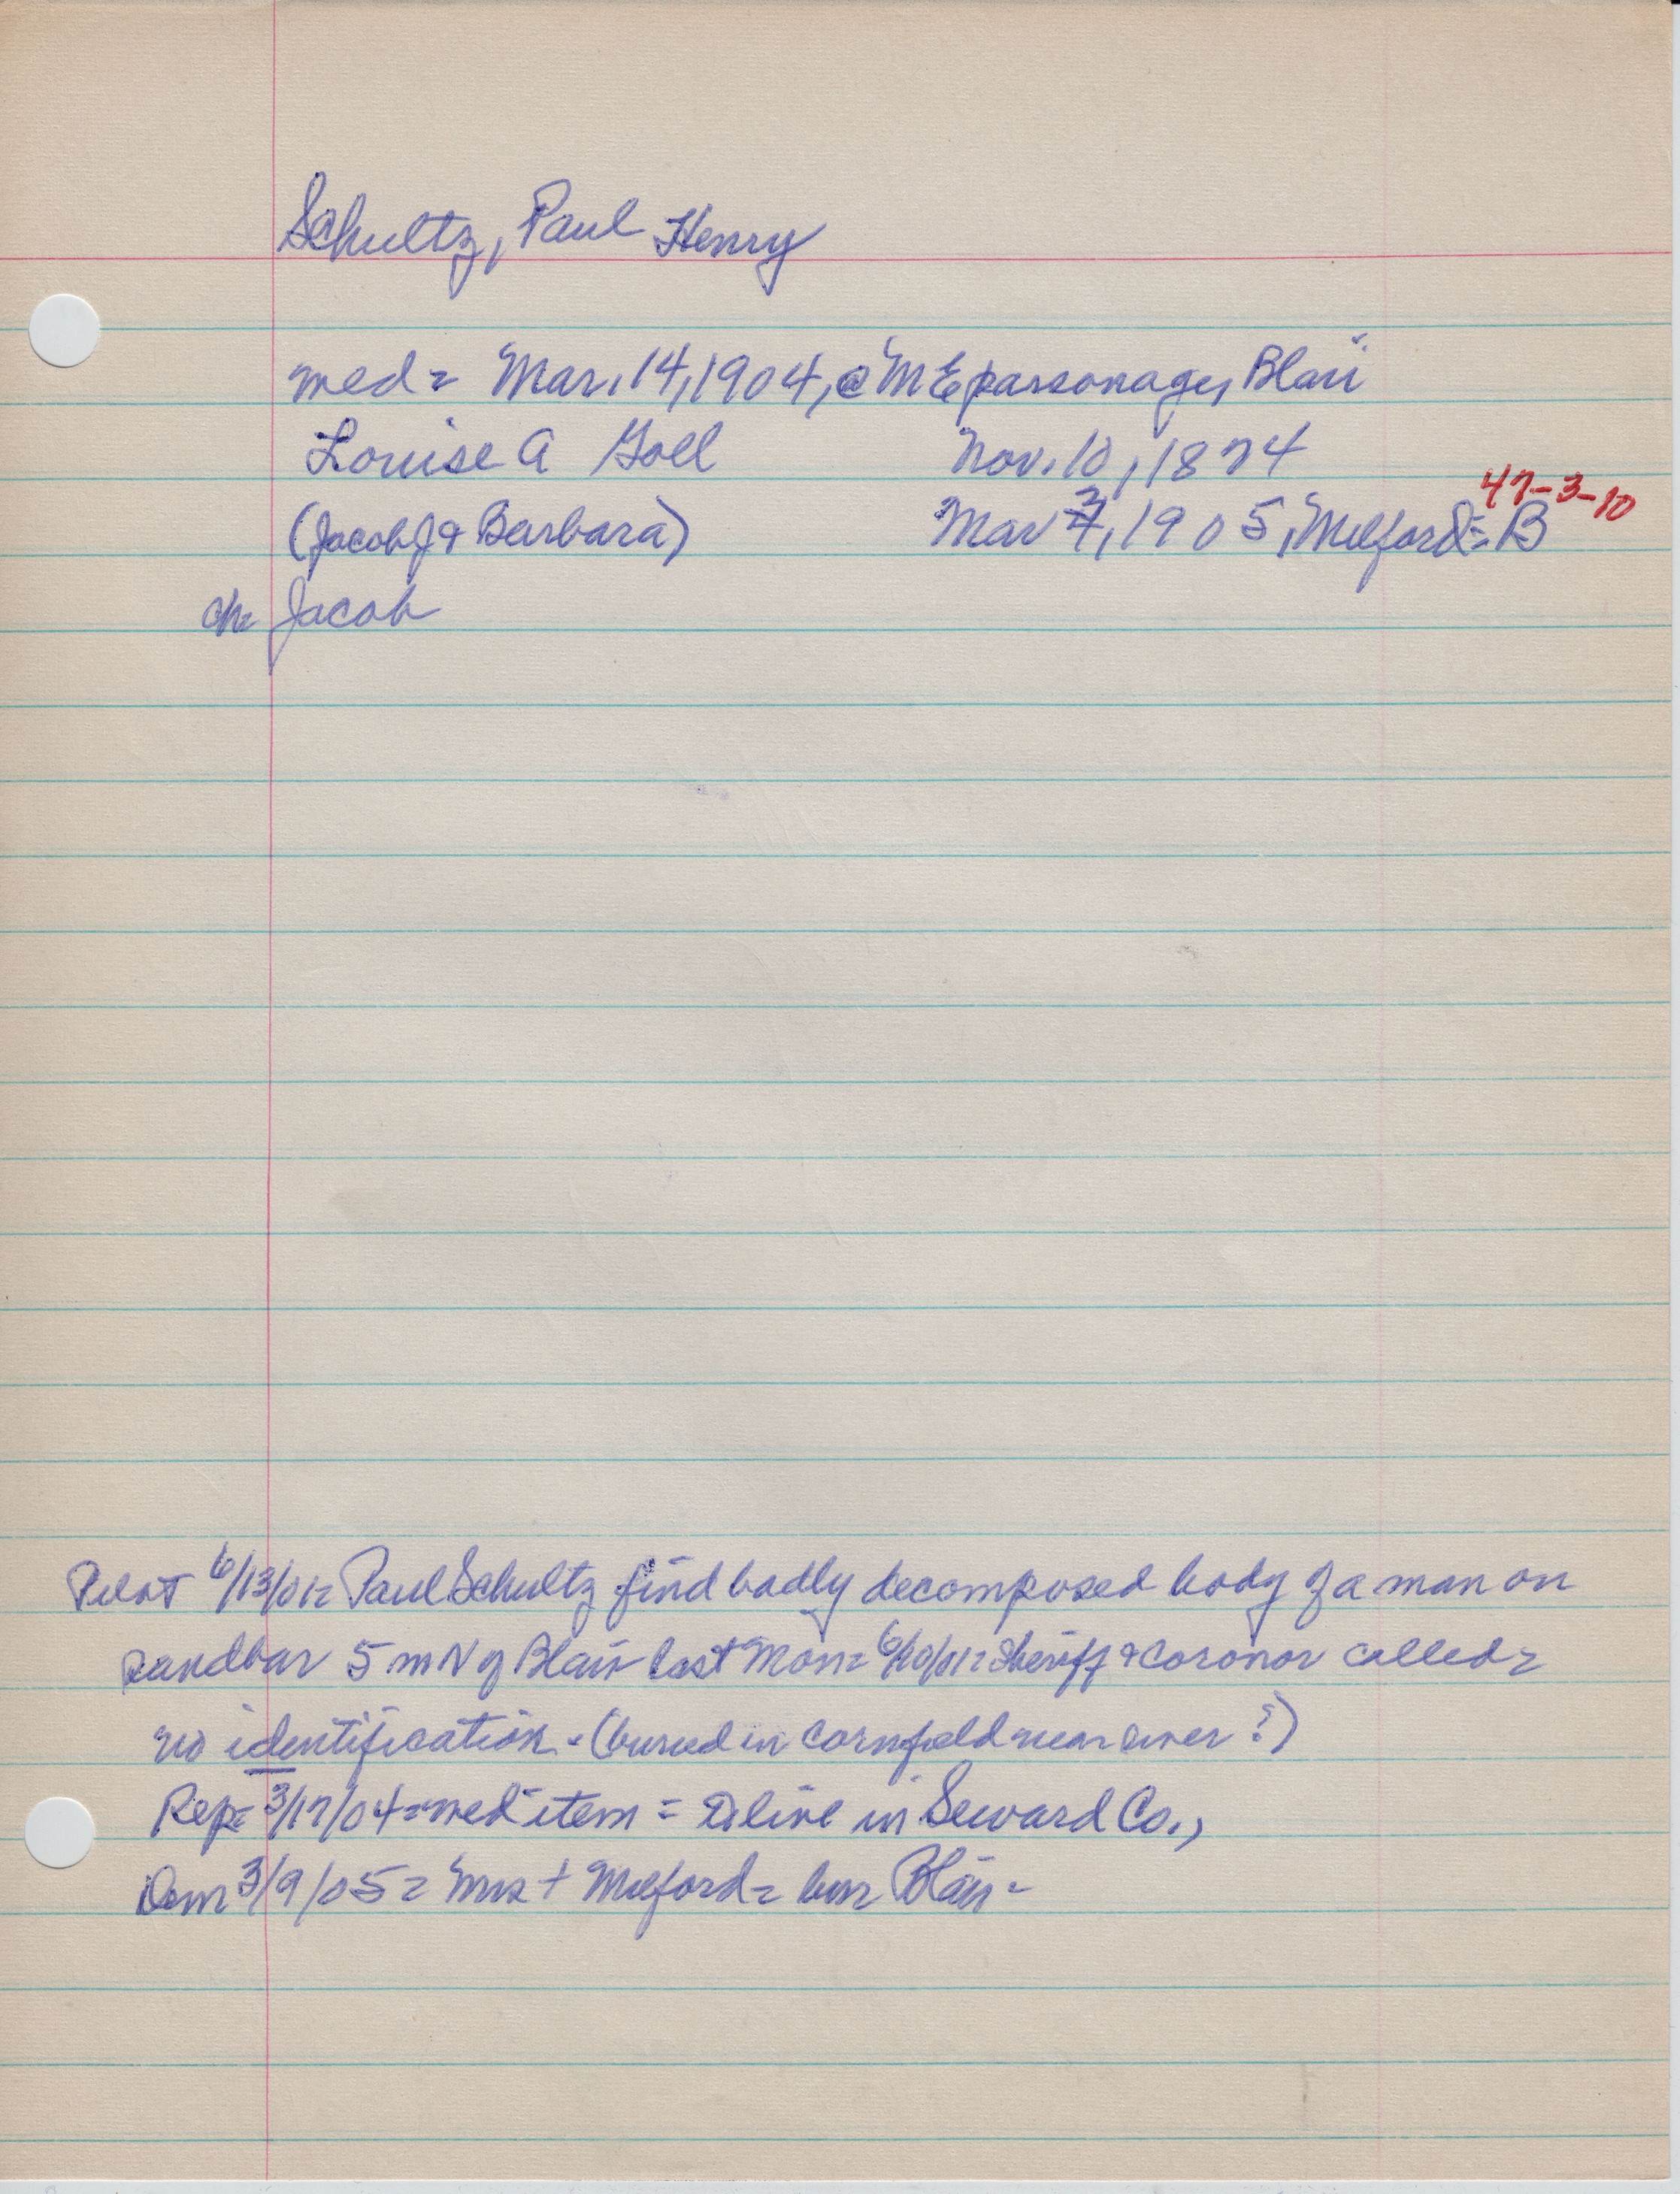 Schultz, Paul Henry
med= Mar. 14, 1904, @ M E parsonage, Blair
Louise A Goll Nov. 10, 1874
47-3-10
(Jacob J & Barbara) Mar 7, 1905, Milford= B
ch= Jacob
Pilot 6/13/01= Paul Schultz find badly decomposed body of a man on
sandbar 5 m N of Blair last Mon= 6/10/01= Sheriff & Coronor called=
no identification - (buried in cornfield near river?)
Rep= 3/17/04= med item = live in Seward Co.,
Dem 3/9/05= Mrs + Milford= bur Blair-